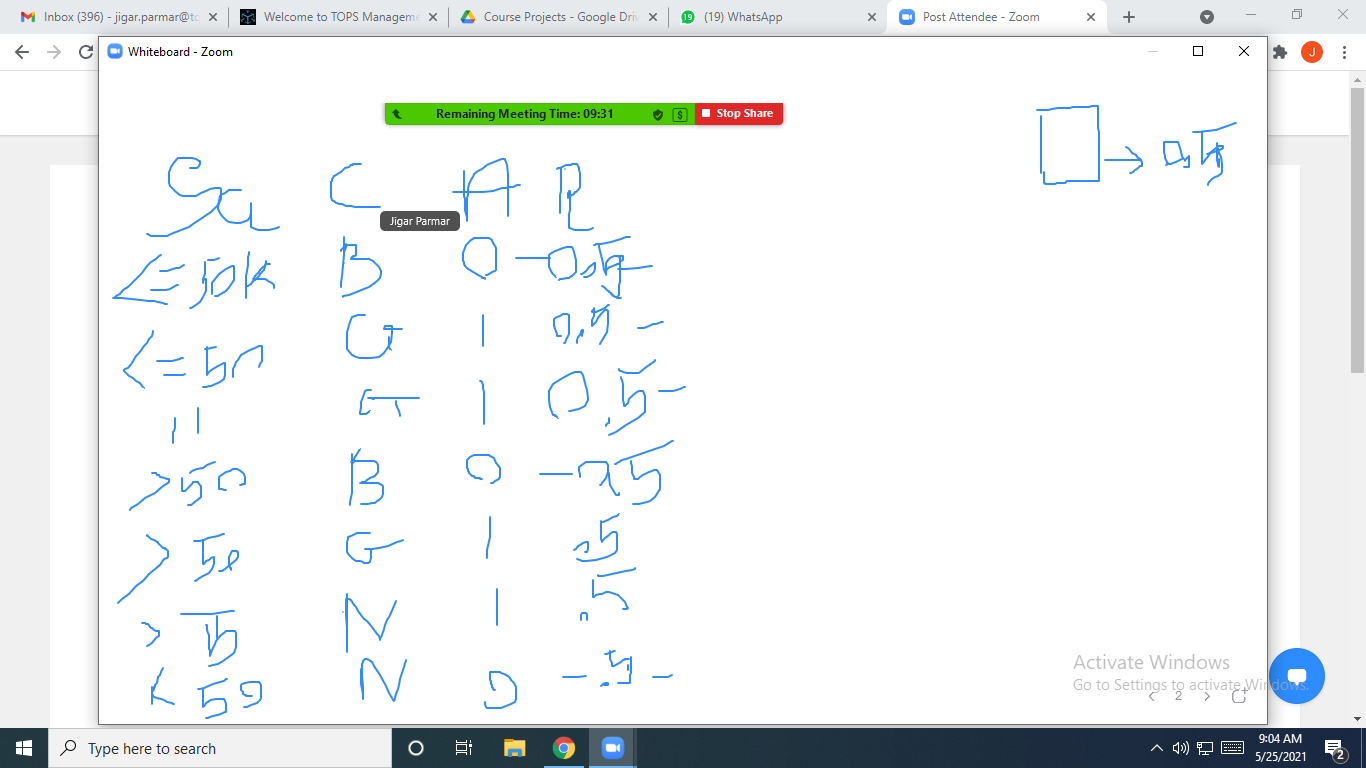 Inbox (396) - jigar.parmar@to
Welcome to TOPS Manageme
Course Projects - Google Driv
(19) WhatsApp
Post Attendee - Zoom
J
Whiteboard - Zoom
Remaining Meeting Time: 09:31
$
Stop Share
→ 0.5
Sa C A R
Jigar Parmar
<=50K B 0 -0.5
<=50 G 1 0.5
11 G 1 0.5
>50 B 0 -.5
>50 G 1 .5
> 5 N 1 .5
<50 N 0 -.5
Activate Windows
Go to Settings to activate Windows.
2
Type here to search
9:04 AM
5/25/2021
2